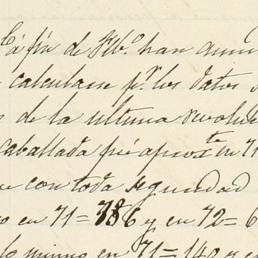 á fin de Fbo. han
calcularse pr. los datos
s de la ultima revolu
caballada fué aproste en 71
e con toda seguridad
o en 71=386 y en 72=6
lo mismo en 71=140 y e